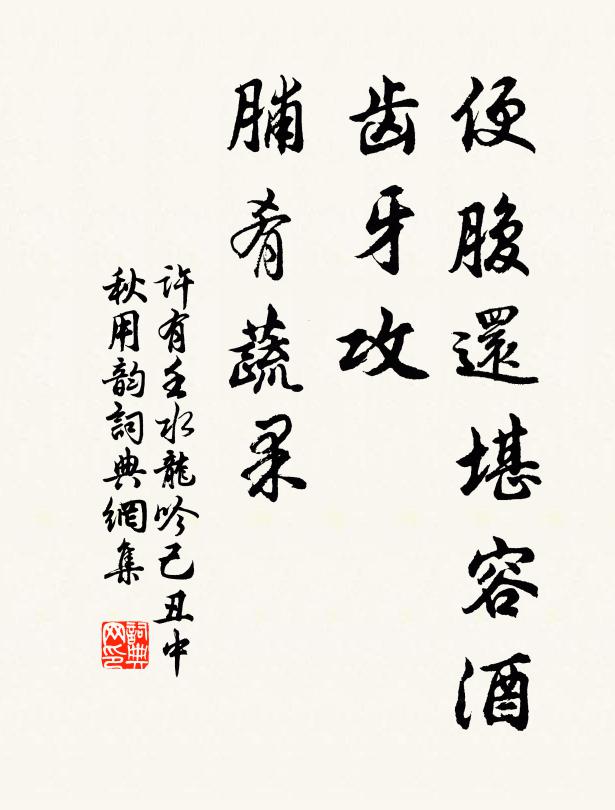 便腹還堪容酒
齿牙攻
脯肴蔬果
許有壬水龍吟己丑中
秋用韵詞典網集
詞典网印